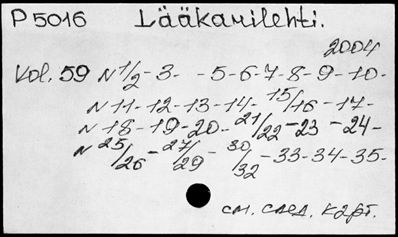 P5016 Lääkärilehti.
2004
Vol. 59 N 1/2-3- -5-6-7-8-9-10-
N 11-12-13-14-15/16-17-
N 18-19-20-21/22-23-24-
N 25/26-27/29-30/32-33-34-35-
см. след. карт.